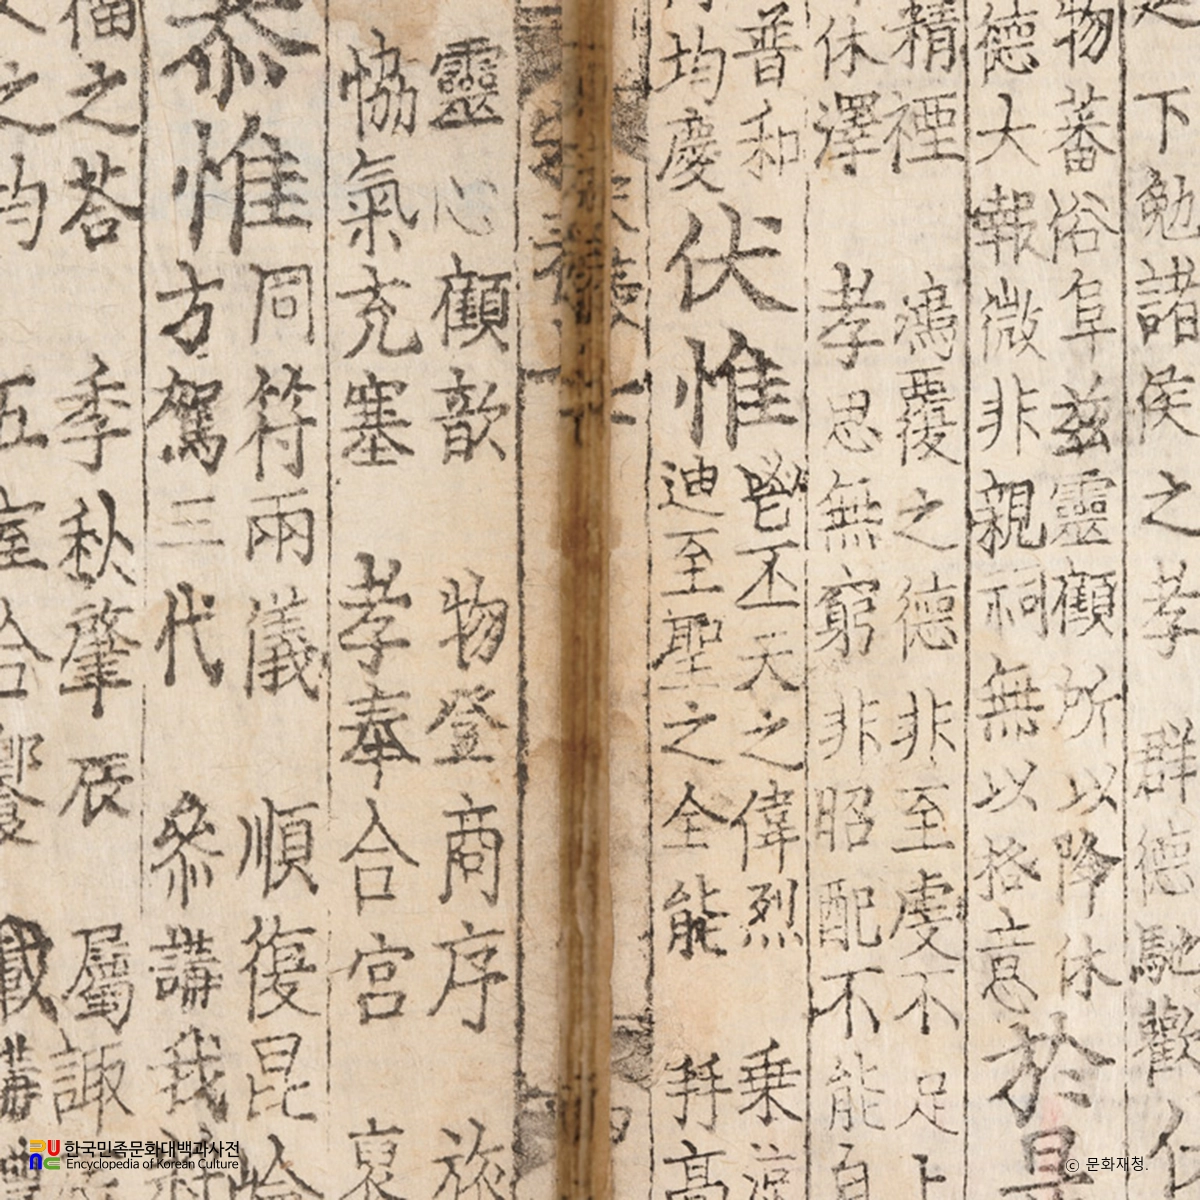 下勉諸侯之孝 群德馳歡
物蕃俗阜茲靈顧所以降休
德大報微非親祠無以格意
於
精禋 鴻覆之德非至虔不足
休澤 孝思無窮非昭配不能
普和
均慶
伏惟
鬯丕天之偉烈 乗
迪至聖之全能 拜高
靈心顧歆 物登商序 旅
協氣充塞 孝奉合宮
恭惟
同符兩儀 順復昆
方駕三代 參講我
福之荅 季秋肇辰 屬諏
之均 五室合饗
한국민족문화대백과사전
Encyclopedia of Korean Culture
© 문화재청.